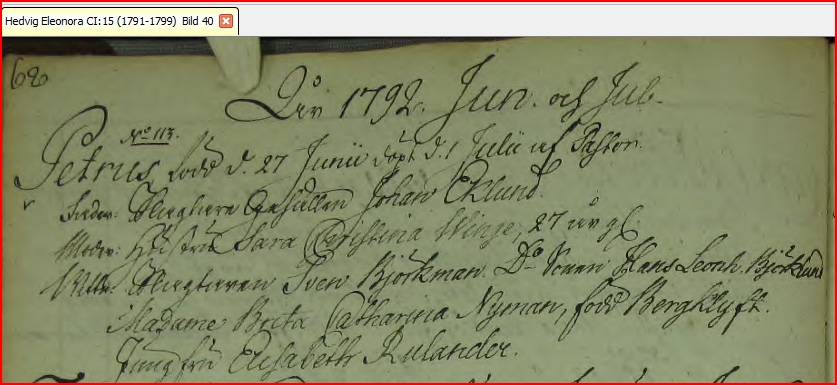 Hedvig Eleonora CI:15 (1791-1799) Bild 40
62
År 1792. Jun. och Jul.
No 113.
Petrus, född d. 27 Junii döpt d. 1 Julii af Pastor.
Fader: Gesällen Johan Eklund.
Moder: Hustru Sara Christina Winge, 27 år gl.
Sven Björkman. Do Sonen Hans Leonh. Björklund
Madame Brita Catharina Nyman, född Bergklyft.
Jungfru Elisabeth Rulander.